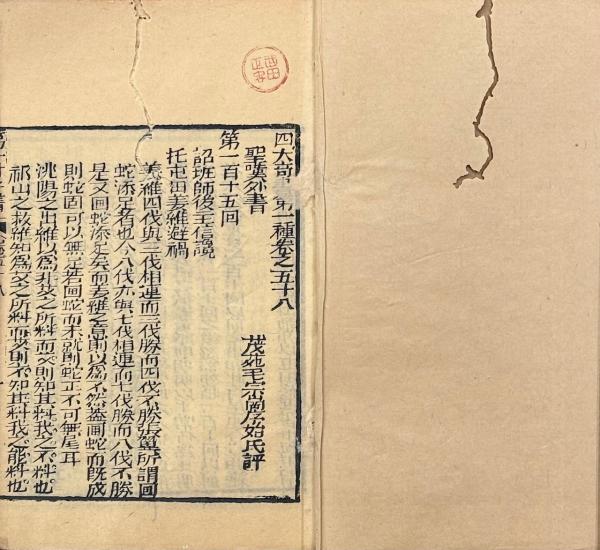 四大奇書第一種卷之五十八
聖嘆外書
茂苑毛宗崗序始氏評
第一百十五回
詔班師後主信讒
托屯田姜維避禍
姜維四伐與三伐相連而三伐勝而四伐不勝張翼所謂畫
蛇添足者也今八伐亦與七伐相連而七伐勝而八伐不勝
是又畫蛇添足矣而姜維之意則以為不然蓋畫蛇而既成
則蛇固可以無足若畫蛇而未就則蛇正不可無尾耳
洮陽之出維以為非艾之所料而艾則知其料我之不料也
祁山之救維知為艾之所料而艾則不知其料我之能料也